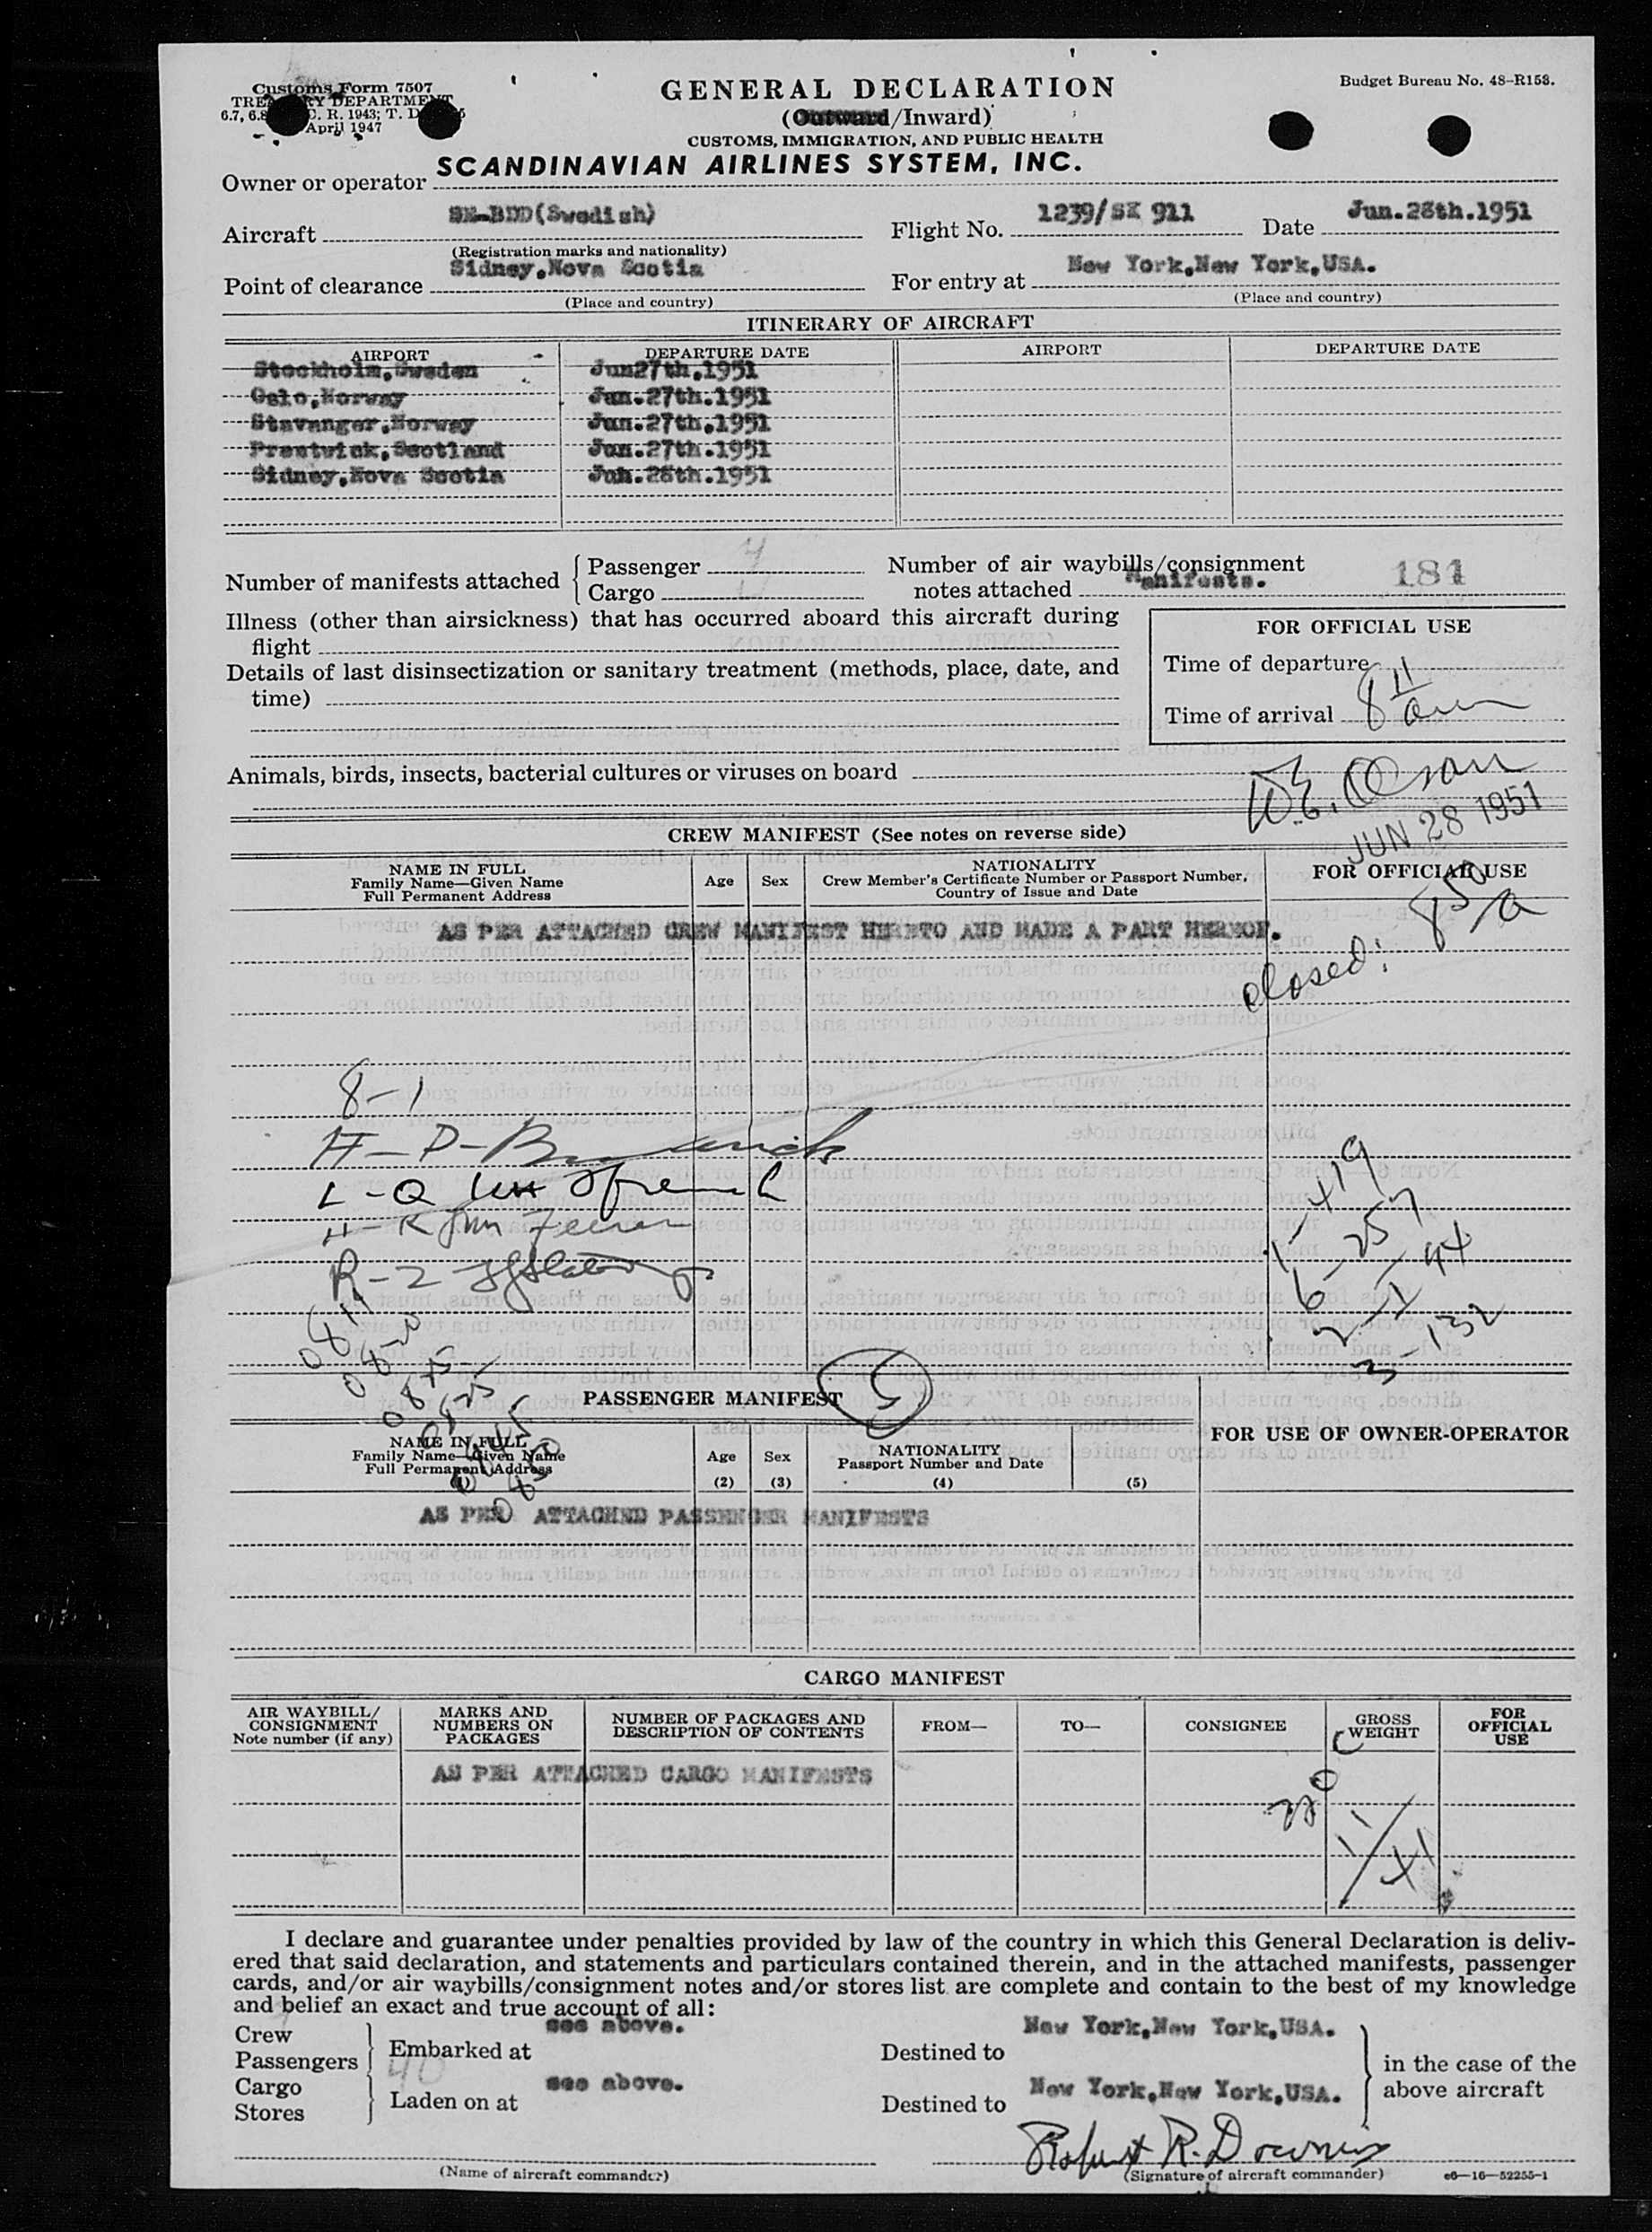 Customs Form 7507
TREASURY DEPARTMENT
C. R. 1943; T. D.
April 1947
GENERAL DECLARATION
(Outward/Inward)
CUSTOMS, IMMIGRATION, AND PUBLIC HEALTH
Budget Bureau No. 48-R153.
Owner or operator SCANDINAVIAN AIRLINES SYSTEM, INC.
Aircraft SE-BDD(Swedish) Flight No. 1239/SK 911 Date Jun.28th.1951
(Registration marks and nationality)
Point of clearance Sidney,Nova Scotia For entry at New York,New York,USA.
(Place and country) (Place and country)
ITINERARY OF AIRCRAFT
AIRPORT DEPARTURE DATE AIRPORT DEPARTURE DATE
Stockholm,Sweden Jun27th.1951
Oslo,Norway Jun.27th.1951
Stavanger,Norway Jun.27th.1951
Prestwick,Scotland Jun.27th.1951
Sidney,Nova Scotia Jun.28th.1951
Number of manifests attached Passenger 4 Cargo
Number of air waybills/consignment notes attached Manifests. 181
Illness (other than airsickness) that has occurred aboard this aircraft during
flight
Details of last disinsectization or sanitary treatment (methods, place, date, and
time)
FOR OFFICIAL USE
Time of departure
Time of arrival 8 11 am
Animals, birds, insects, bacterial cultures or viruses on board
W.E. Olson
JUN 28 1951
CREW MANIFEST (See notes on reverse side)
NAME IN FULL
Family Name—Given Name
Full Permanent Address
Age
Sex
NATIONALITY
Crew Member's Certificate Number or Passport Number,
Country of Issue and Date
FOR OFFICIAL USE
AS PER ATTACHED CREW MANIFEST HERETO AND MADE A PART HEREOF.
closed: 8 50/a
8-1
H-P-
L-Q
R-2
1-419
6-257
2-144
3-132
0811
0820
0825
PASSENGER MANIFEST 5
NAME IN FULL
Family Name—Given Name
Full Permanent Address
(1)
Age
(2)
Sex
(3)
NATIONALITY
Passport Number and Date
(4)
(5)
FOR USE OF OWNER-OPERATOR
AS PER ATTACHED PASSENGER MANIFESTS
CARGO MANIFEST
AIR WAYBILL/
CONSIGNMENT
Note number (if any)
MARKS AND
NUMBERS ON
PACKAGES
NUMBER OF PACKAGES AND
DESCRIPTION OF CONTENTS
FROM—
TO—
CONSIGNEE
GROSS
WEIGHT
FOR
OFFICIAL
USE
AS PER ATTACHED CARGO MANIFESTS
220
11/41
I declare and guarantee under penalties provided by law of the country in which this General Declaration is deliv-
ered that said declaration, and statements and particulars contained therein, and in the attached manifests, passenger
cards, and/or air waybills/consignment notes and/or stores list are complete and contain to the best of my knowledge
and belief an exact and true account of all:
Crew
Passengers 40
Embarked at see above. Destined to New York,New York,USA.
Cargo
Stores
Laden on at see above. Destined to New York,New York,USA.
in the case of the
above aircraft
Robert R. Downing
(Name of aircraft commander) (Signature of aircraft commander) c6—16—52255-1